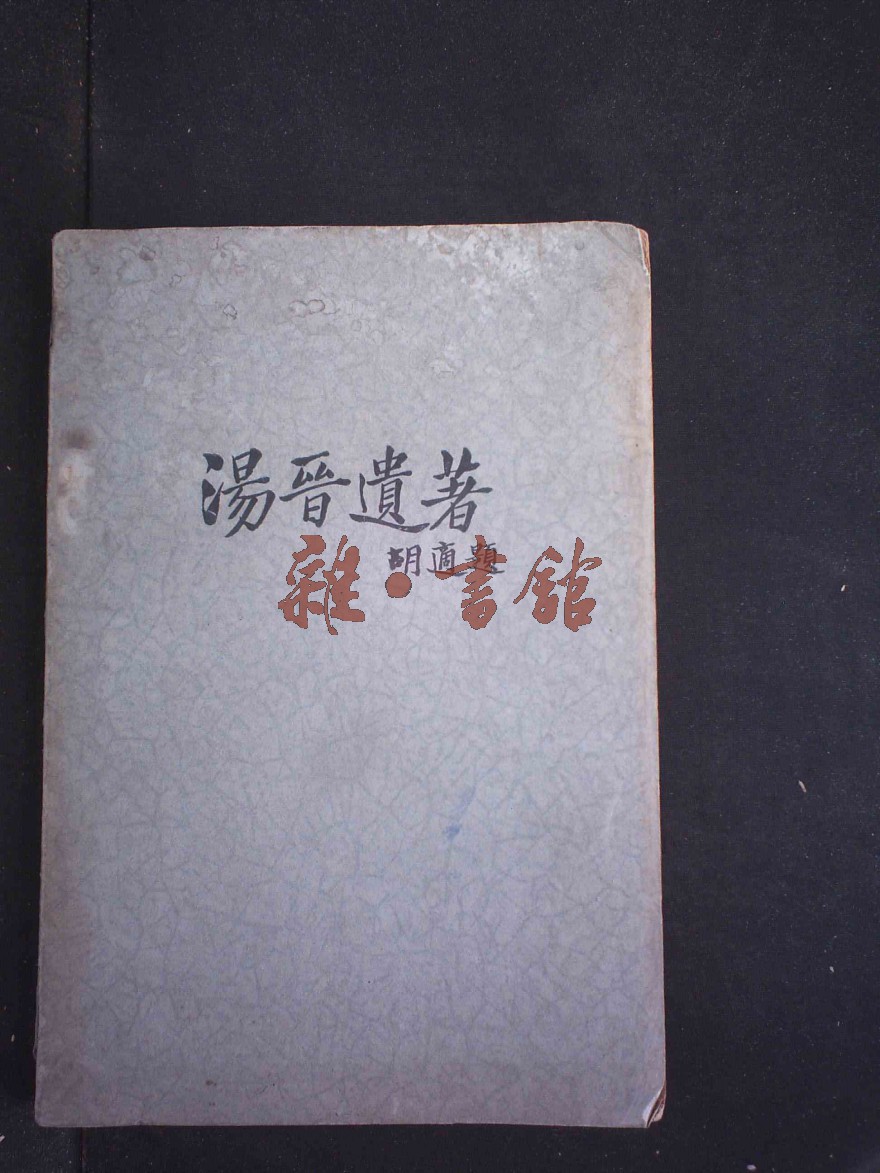 湯晉遺著
胡適題
雜·書館